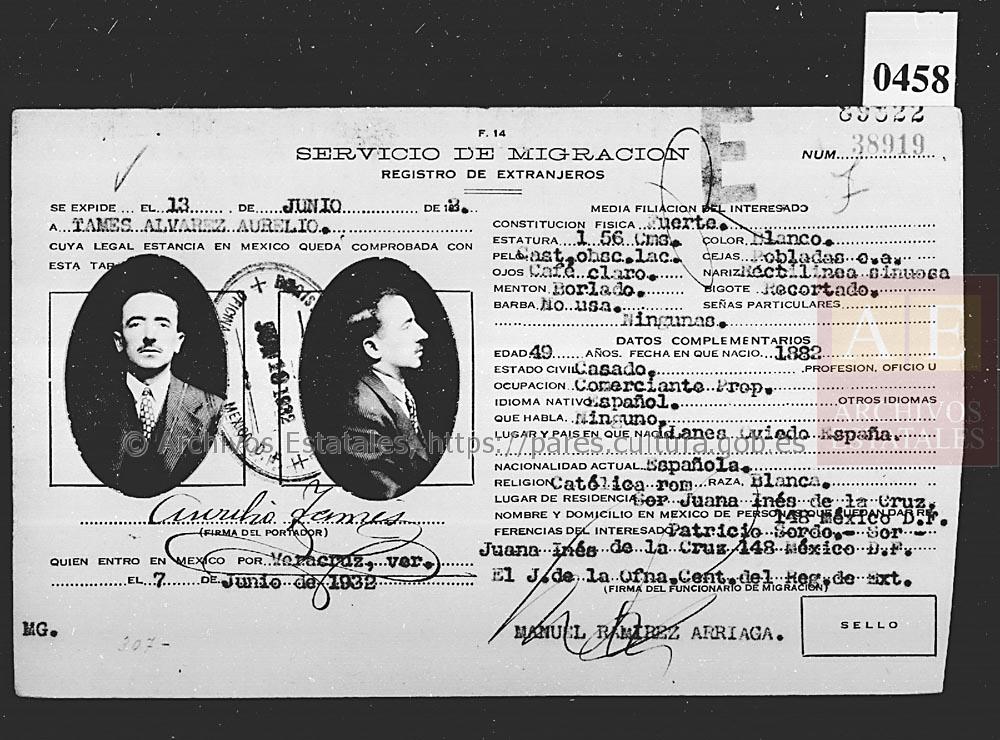 0458
89822
F. 14
SERVICIO DE MIGRACION
REGISTRO DE EXTRANJEROS
E
NUM. 38919
SE EXPIDE EL 13 DE JUNIO DE
A TAMES ALVAREZ AURELIO.
CUYA LEGAL ESTANCIA EN MEXICO QUEDA COMPROBADA CON
ESTA TAR
MEDIA FILIACION DEL INTERESADO
CONSTITUCION FISICA Fuerte.
ESTATURA 1 56 Cms. COLOR Blanco.
PELO Cast.obsc.lac. CEJAS Pobladas o.a.
OJOS Café claro. NARIZ Rectilinea sinuosa
MENTON Borlado. BIGOTE Recortado.
BARBA No usa. SEÑAS PARTICULARES
Ningunas.
DATOS COMPLEMENTARIOS
EDAD 49 AÑOS. FECHA EN QUE NACIO 1882
ESTADO CIVIL Casado. PROFESION, OFICIO U
OCUPACION Comerciante Prop.
IDIOMA NATIVO Español. OTROS IDIOMAS
QUE HABLA Ninguno,
LUGAR Y PAIS EN QUE NACIO Llanes Oviedo España.
NACIONALIDAD ACTUAL Española.
RELIGION Católica rom RAZA Blanca.
LUGAR DE RESIDENCIA Sor Juana Inés de la Cruz.
148 México D.F.
NOMBRE Y DOMICILIO EN MEXICO DE PERSONAS QUE PUEDAN DAR RE
FERENCIAS DEL INTERESADO Patricio Sordo.- Sor
Juana Inés de la Cruz 148 México D.F.
El J.de la Ofna.Cent.del Reg.de Ext.
(FIRMA DEL FUNCIONARIO DE MIGRACION)
MANUEL RAMIREZ ARRIAGA.
SELLO
OFICINA
JUN 10 1932
MEXICO
Aurelio Tames
(FIRMA DEL PORTADOR)
QUIEN ENTRO EN MEXICO POR Veracruz, ver.
EL 7 DE Junio de 1932
MG.
307-
© Archivos Estatales, https://pares.cultura.gob.es
A E
ARCHIVOS
ESTATALES